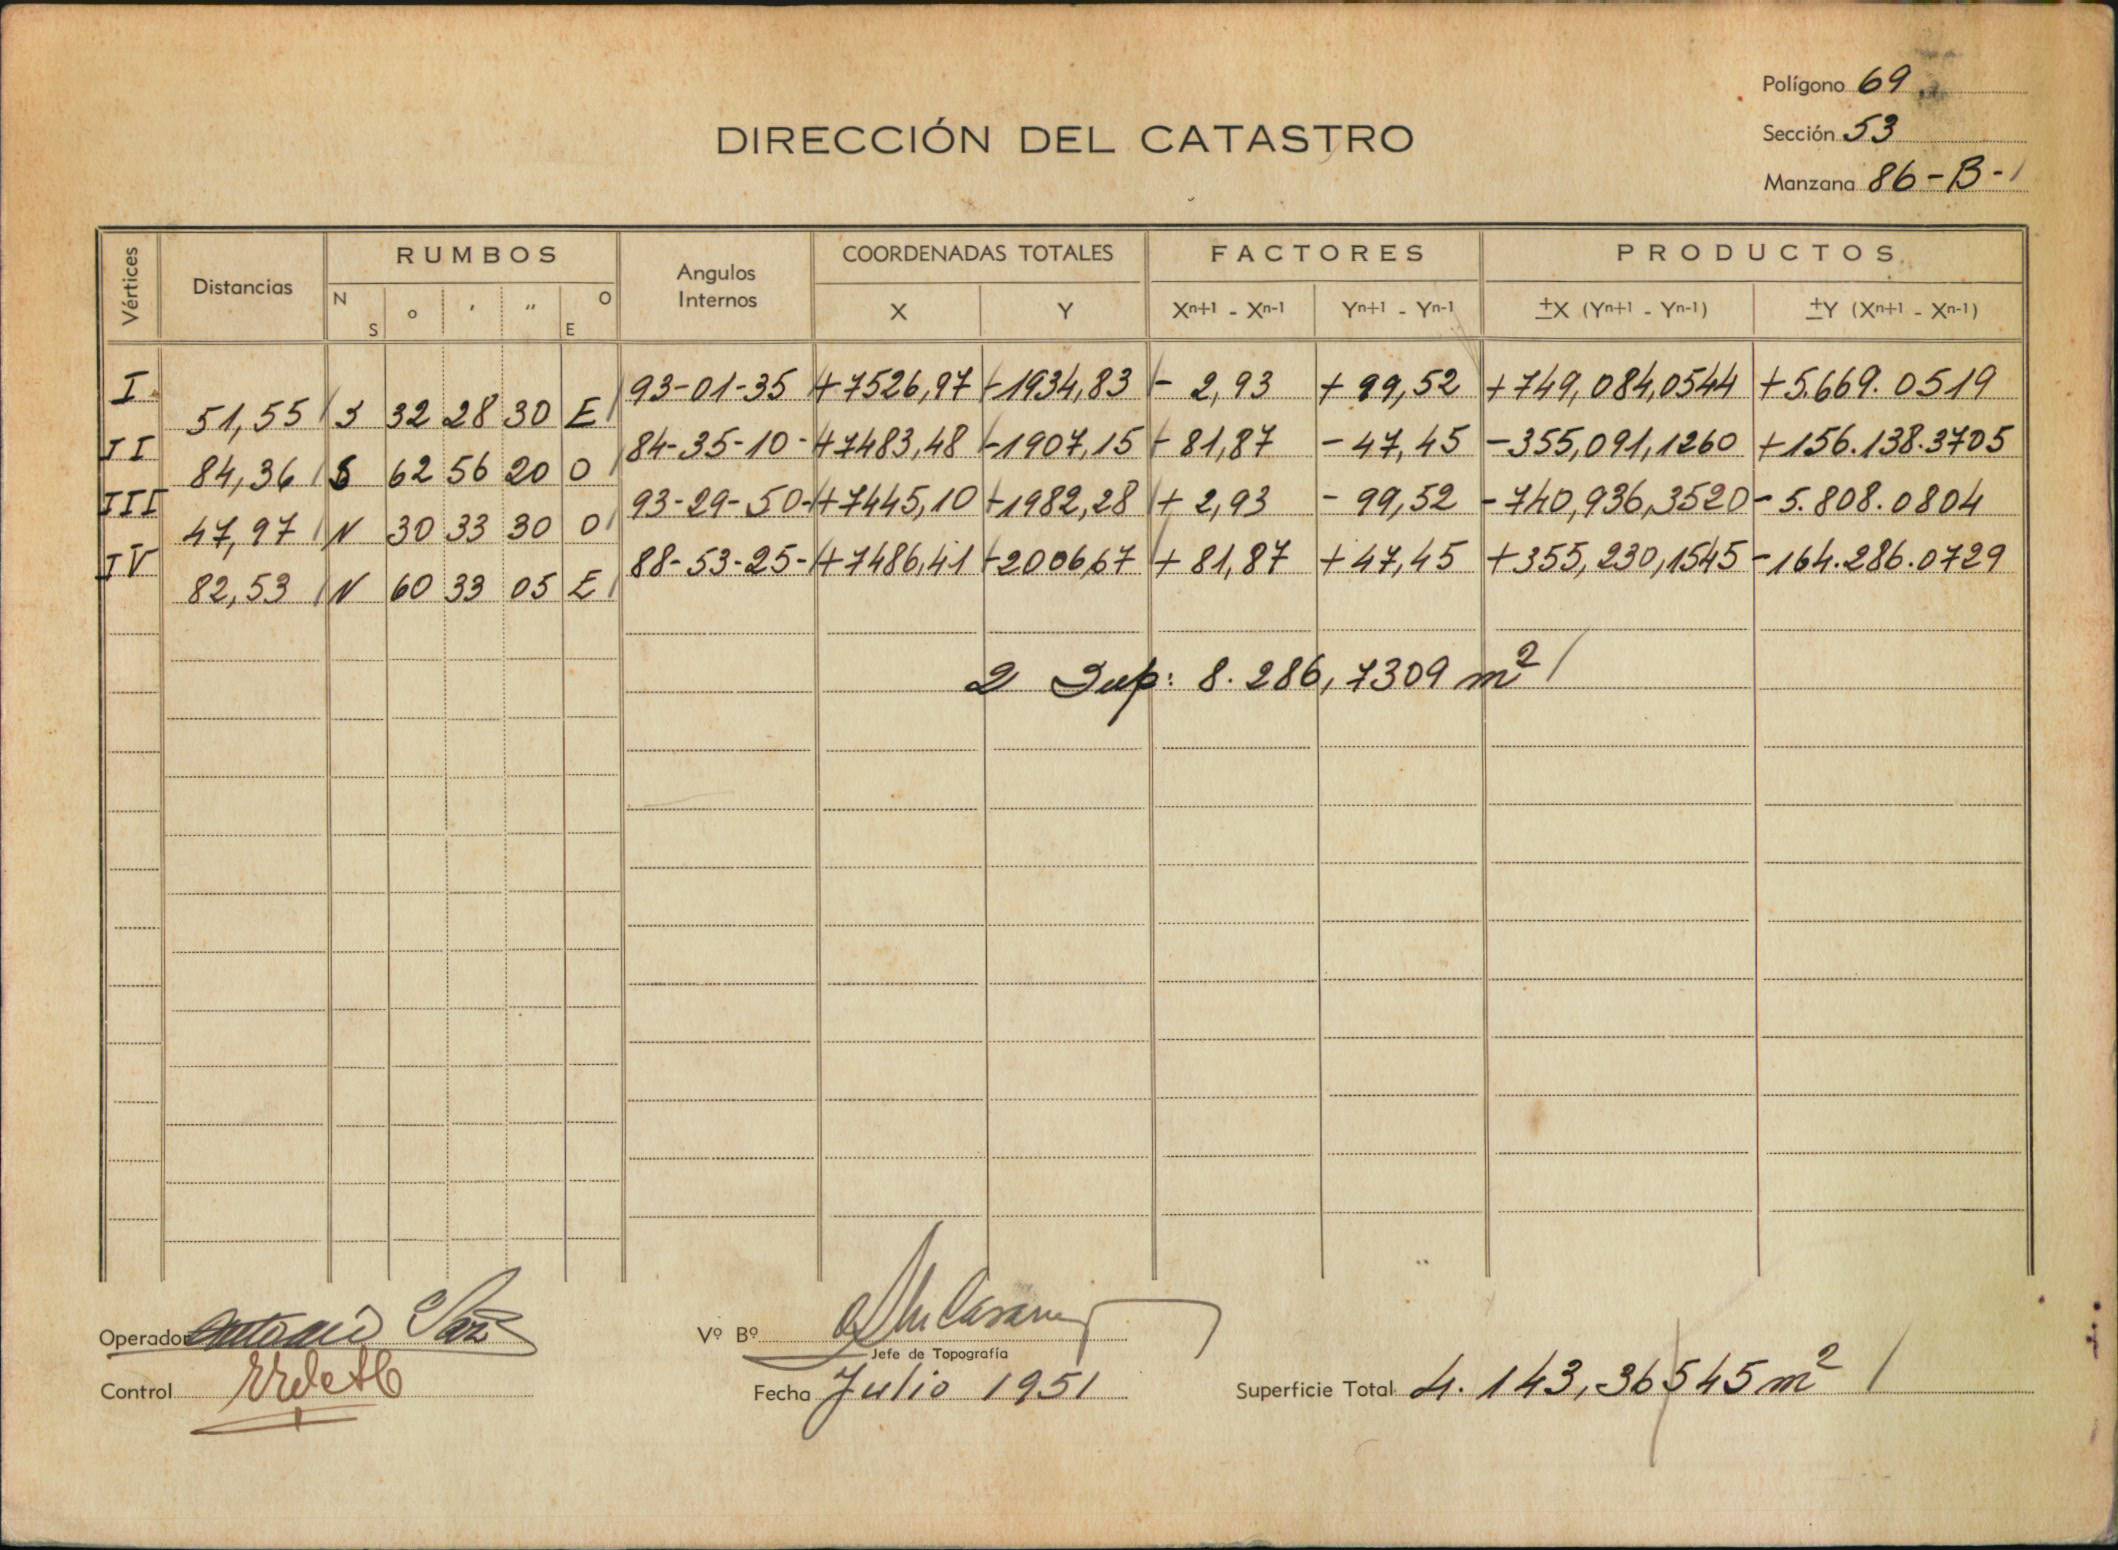 Polígono 69
DIRECCIÓN DEL CATASTRO
Sección 53
Manzana 86-B-1
Vértices Distancias RUMBOS Angulos Internos COORDENADAS TOTALES FACTORES PRODUCTOS
N S o ' " O E X Y Xn+1 - Xn-1 Yn+1 - Yn-1 ±X (Yn+1 - Yn-1) ±Y (Xn+1 - Xn-1)
I 93-01-35 +7526,97 -1934,83 - 2,93 + 99,52 +749,084,0544 +5.669.0519
51,55 S 32 28 30 E
II 84-35-10- +7483,48 -1907,15 - 81,87 - 47,45 -355,091,1260 +156.138.3705
84,36 S 62 56 20 O
III 93-29-50- +7445,10 -1982,28 + 2,93 - 99,52 -740,936,3520 - 5.808.0804
47,97 N 30 33 30 O
IV 88-53-25- +7486,41 -2006,67 + 81,87 + 47,45 +355,230,1545 -164.286.0729
82,53 N 60 33 05 E
2 Sup: 8.286,7309 m2
Operador Antonio
Vº Bº
Jefe de Topografía
Control
Fecha Julio 1951
Superficie Total 4.143,36545 m2